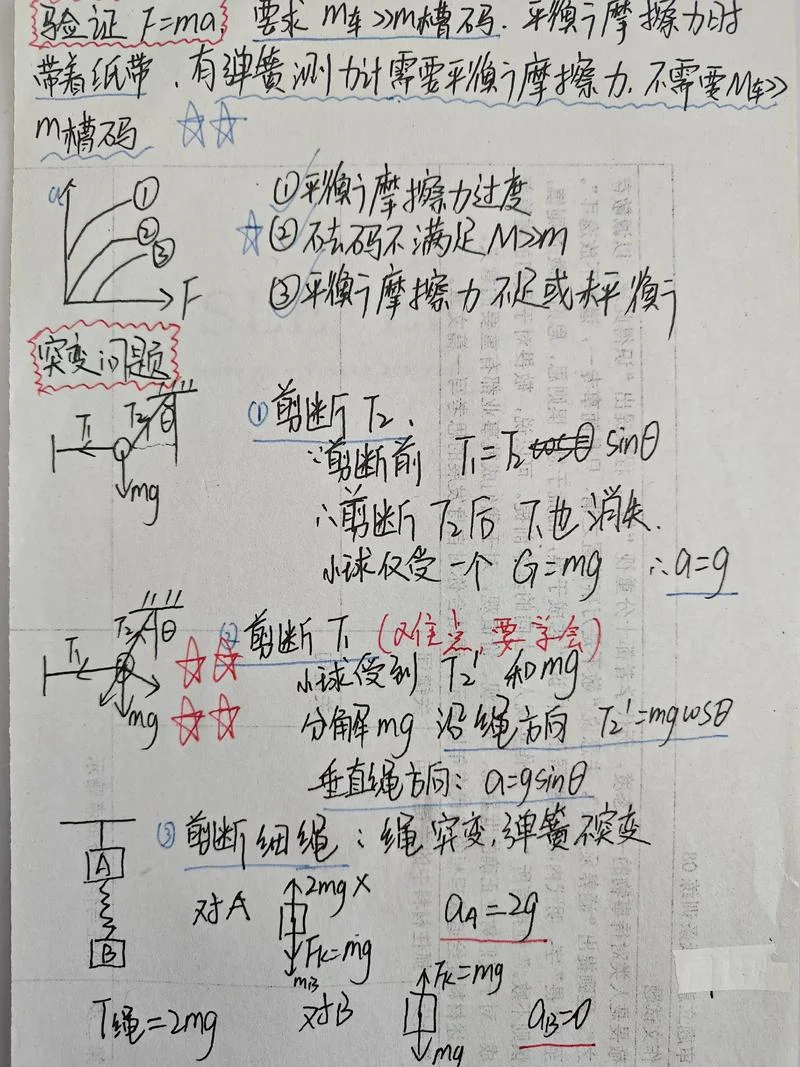 验证 F=ma, 要求 M车>>m槽码. 平衡摩擦力时
带着纸带, 有弹簧测力计需要平衡摩擦力. 不需要M车>>
m槽码
a
①
②
③
F
①平衡摩擦力过度
②砝码不满足 M>>m
③平衡摩擦力不足或未平衡
突变问题
T₁ T₂ θ
mg
①剪断 T₂.
∵剪断前 T₁=T₂ cosθ sinθ
∴剪断 T₂后 T₁也消失.
小球仅受一个 G=mg ∴a=g
T₁ T₂ θ
mg
②剪断 T₁ (难点, 要学会)
小球受到 T₂' 和mg
分解mg 沿绳方向 T₂'=mgcosθ
垂直绳方向: a=gsinθ
③剪断细绳: 绳突变, 弹簧不突变
A
B
对A
2mg ×
Fk=mg
aA=2g
T绳=2mg
对B
Fk=mg
mg
aB=0